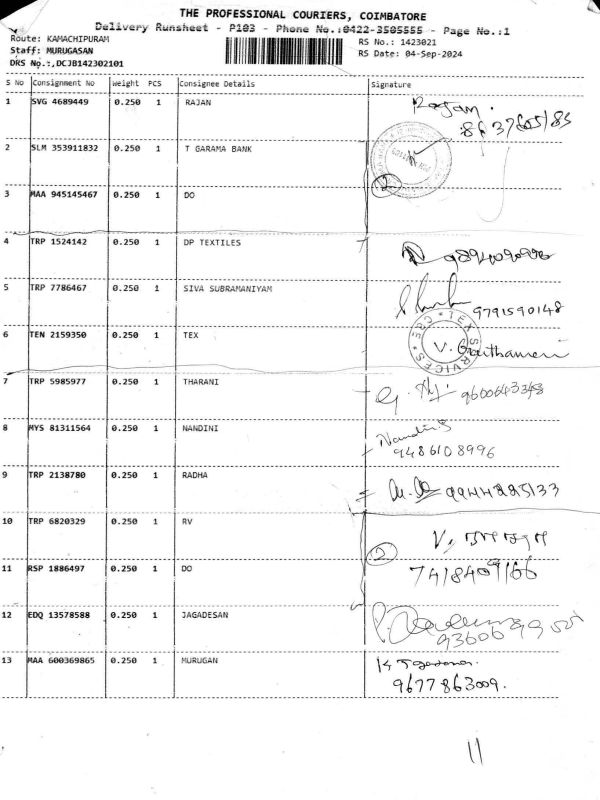 THE PROFESSIONAL COURIERS, COIMBATORE
Delivery Runsheet - P103 - Phone No.:0422-3505555 - Page No.:1
Route: KAMACHIPURAM
RS No.: 1423021
Staff: MURUGASAN
RS Date: 04-Sep-2024
DRS No.:,DCJB142302101
S No Consignment No Weight PCS Consignee Details Signature
1 SVG 4689449 0.250 1 RAJAN Rajan.
2 SLM 353911832 0.250 1 T GARAMA BANK
3 MAA 945145467 0.250 1 DO 2
4 TRP 1524142 0.250 1 DP TEXTILES
5 TRP 7786467 0.250 1 SIVA SUBRAMANIYAM 9791590148
6 TEN 2159350 0.250 1 TEX CRE * TEX SERVICES * V. Gouthameri
7 TRP 5985977 0.250 1 THARANI 9600643348
8 MYS 81311564 0.250 1 NANDINI Nandini
9486108996
9 TRP 2138780 0.250 1 RADHA 9944225133
10 TRP 6820329 0.250 1 RV V.
11 RSP 1886497 0.250 1 DO 2 7418409166
12 EDQ 13578588 0.250 1 JAGADESAN
13 MAA 600369865 0.250 1 MURUGAN
9677863009.
11